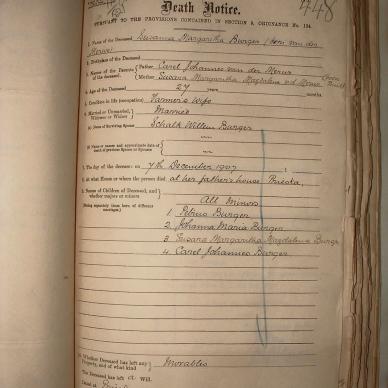 448
Death Notice.
PURSUANT TO THE PROVISIONS CONTAINED IN SECTION 9, ORDINANCE No. 104.
1. Name of the Deceased Susanna Margaretha Burger (born van der
Merwe)
2. Birthplace of the Deceased
3. Names of the Parents of the deceased. Father Carel Johannes van der Merwe
Mother Susara Margaretha Magdalena v.d. Merwe (born
4. Age of the Deceased 27 years months
5. Condition in life (occupation) Farmer's Wife
6. Married or Unmarried, Widower or Widow Married
(a) Name of Surviving Spouse Schalk Willem Burger
(b) Name or names and approximate date of death of previous Spouse or Spouses
7. The day of the decease: on 7th December 1907
8. At what House or where the person died at her father's house Prieska
9. Names of Children of Deceased, and whether majors or minors
All Minors
(Stating separately those born of different marriages.)
1 Petrus Burger
2 Johanna Maria Burger
3 Susara Margaretha Magdalena Burger
4. Carel Johannes Burger
10. Whether Deceased has left any Property, and of what kind Movables
The Deceased has left a Will.
Dated at